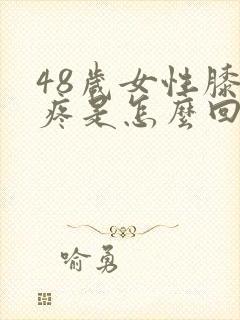 48歲女性膝
疼是怎麼回
喻勇